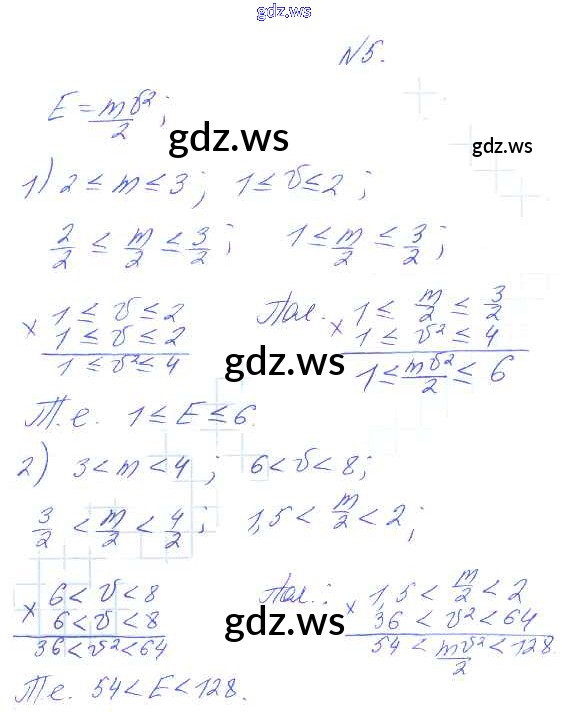 gdz.ws
N5.
E = mv²/2;
gdz.ws
gdz.ws
1) 2 ≤ m ≤ 3; 1 ≤ v ≤ 2;
2/2 ≤ m/2 ≤ 3/2; 1 ≤ m/2 ≤ 3/2;
× 1 ≤ v ≤ 2
1 ≤ v ≤ 2
1 ≤ v² ≤ 4
gdz.ws
Пол. × 1 ≤ m/2 ≤ 3/2
1 ≤ v² ≤ 4
1 ≤ mv²/2 ≤ 6
Т.е. 1 ≤ E ≤ 6.
2) 3 < m < 4; 6 < v < 8;
3/2 < m/2 < 4/2; 1,5 < m/2 < 2;
× 6 < v < 8
6 < v < 8
36 < v² < 64
gdz.ws
Пол.: × 1,5 < m/2 < 2
36 < v² < 64
54 < mv²/2 < 128
Т.е. 54 < E < 128.